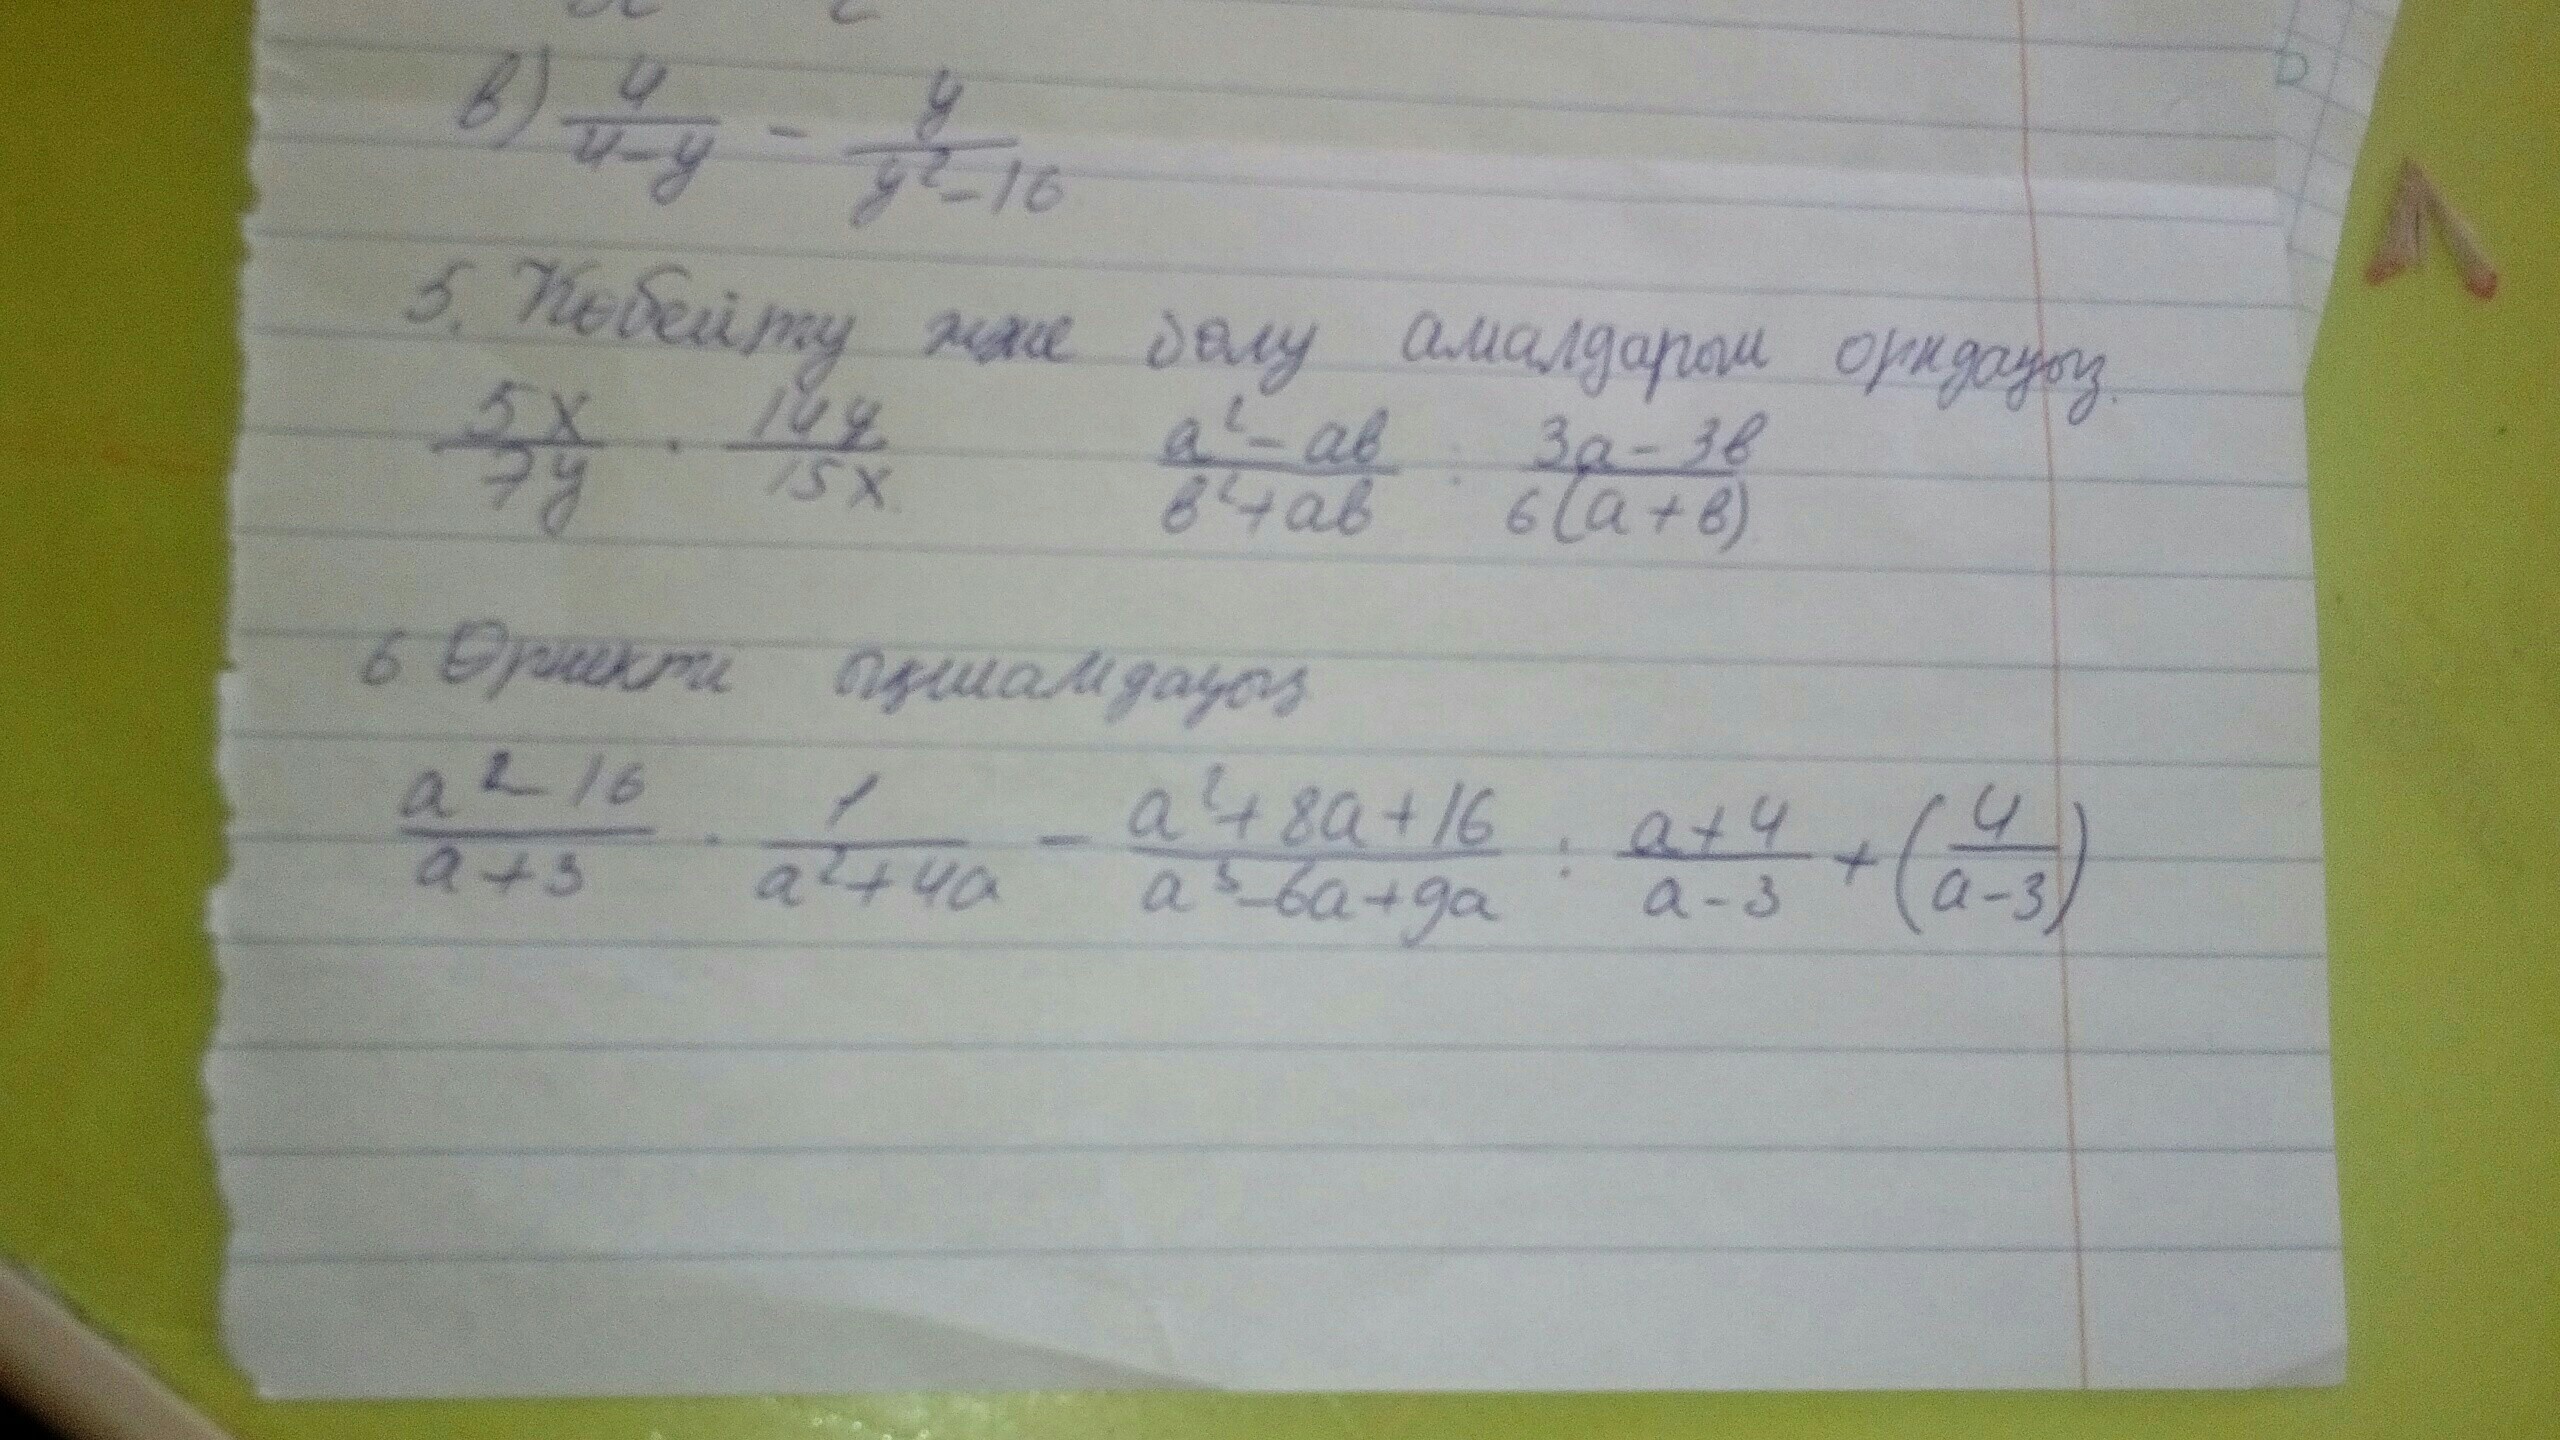 в) 4/(4-y) - y/(y²-16)
5. Көбейту жже бөлу амалдарын орндаңыз.
5x/7y · 14y/15x    (a²-aв)/(в²+aв) : (3a-3в)/(6(a+в))
6 Өрнекті ықшамдаңыз
(a²-16)/(a+3) · 1/(a²+4a) - (a²+8a+16)/(a³-6a+9a) : (a+4)/(a-3) + (4/(a-3))